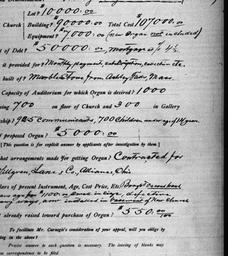 Lot? 10000.00
Church Building? 90000.00 Total Cost $107000.00
Equipment? $7000.00 (new Organ not included)
of Debt? $50000.00 mortgage at
it provided for? Monthly payments, subscriptions,
built of? Marble Stone from Ashley Falls, Mass.
Capacity of Auditorium for which Organ is desired? 1000
700 on floor of Church and 300 in Gallery
925 communicants, 700 Children
proposed Organ? $5000.00
[This question is for explicit answer by applicants after investigation by them]
what arrangements made for getting Organ? Contracted for
Hillgren, Lane & Co., Alliance, Ohio
of present Instrument, Age, Cost Price, Etc.?
defective
now installed in of New Church
already raised toward purchase of Organ? $550.00
To facilitate Mr. Carnegie's consideration of your appeal, will you oblige by
ing in the above?
Precise answer to each question is necessary. The leaving of blanks may
on correspondence to no effect.